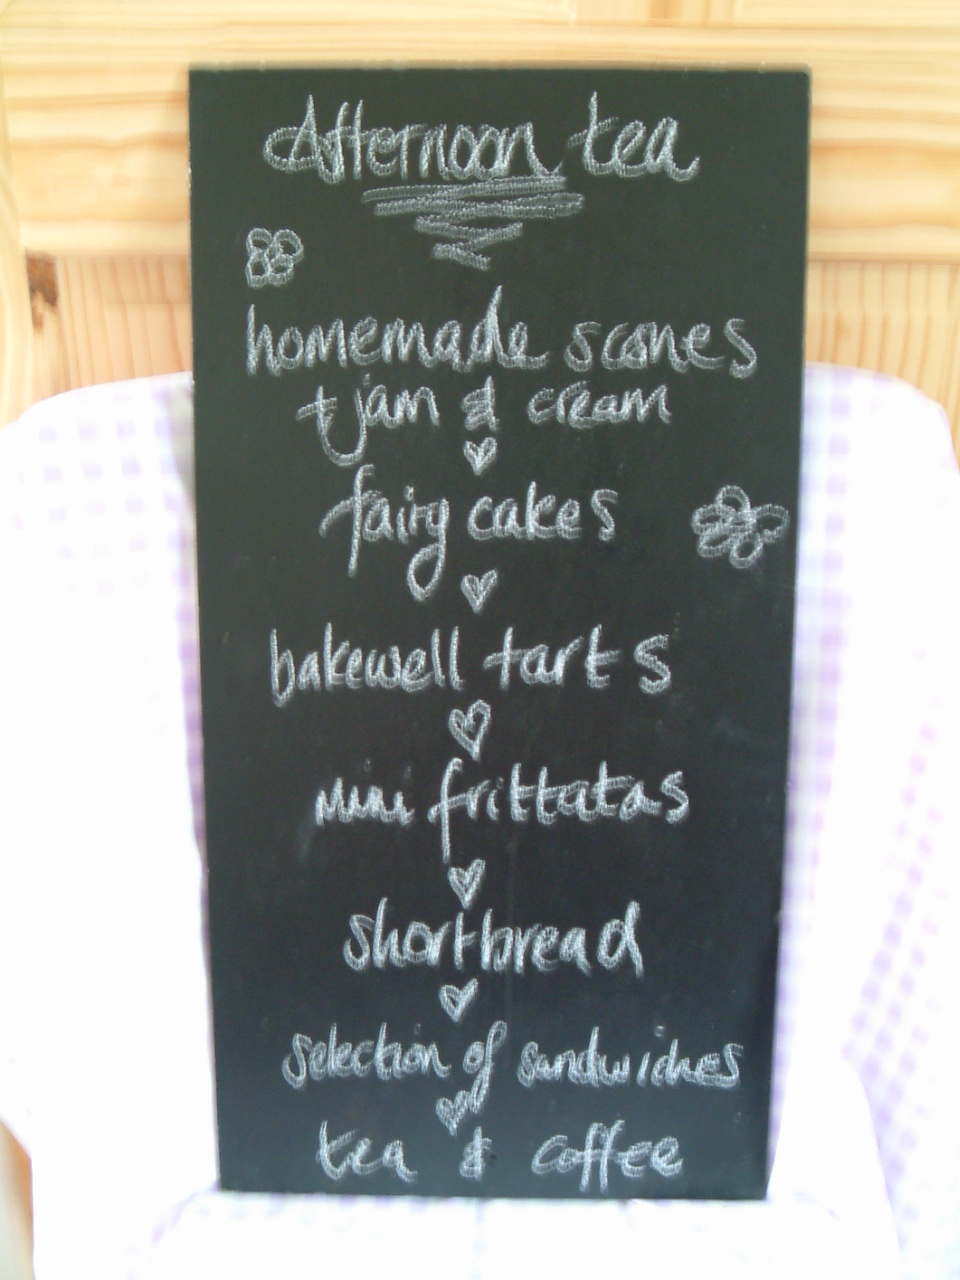 Afternoon tea
homemade scones
+ jam & cream
fairy cakes
bakewell tarts
mini frittatas
shortbread
selection of sandwiches
tea & coffee